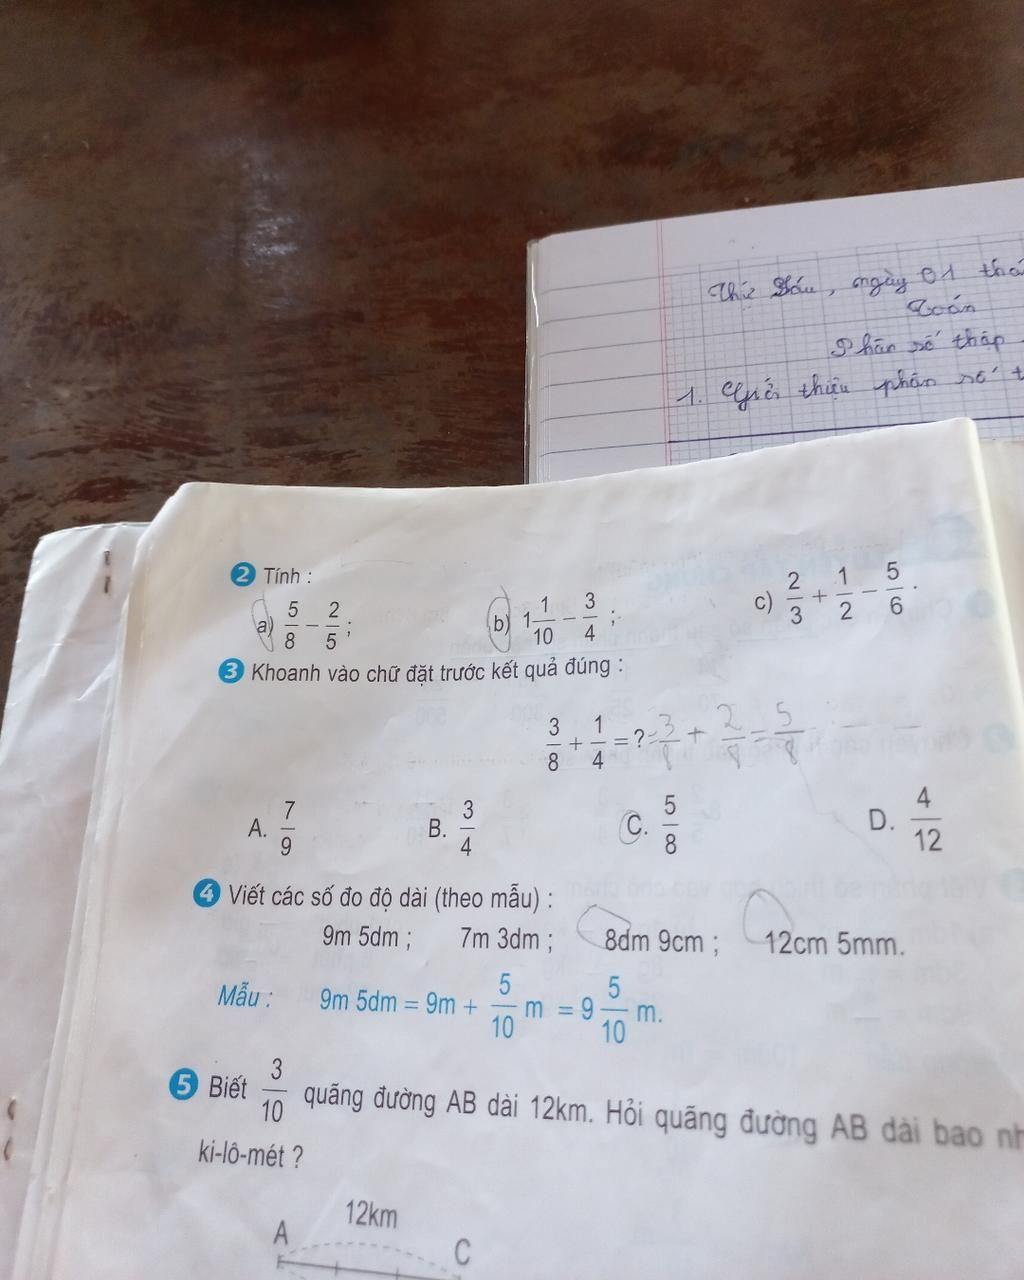 Thứ Sáu, ngày 01 thá
Toán
Phân số thập
1. Giới thiệu phân số t
2 Tính :
a) 5/8 − 2/5 ; b) 1 1/10 − 3/4 ; c) 2/3 + 1/2 − 5/6 .
3 Khoanh vào chữ đặt trước kết quả đúng :
3/8 + 1/4 = ? = 3/8 + 2/8 = 5/8
A. 7/9 B. 3/4 C. 5/8 D. 4/12
4 Viết các số đo độ dài (theo mẫu) :
9m 5dm ; 7m 3dm ; 8dm 9cm ; 12cm 5mm.
Mẫu : 9m 5dm = 9m + 5/10 m = 9 5/10 m.
5 Biết 3/10 quãng đường AB dài 12km. Hỏi quãng đường AB dài bao nh
ki-lô-mét ?
12km
A C